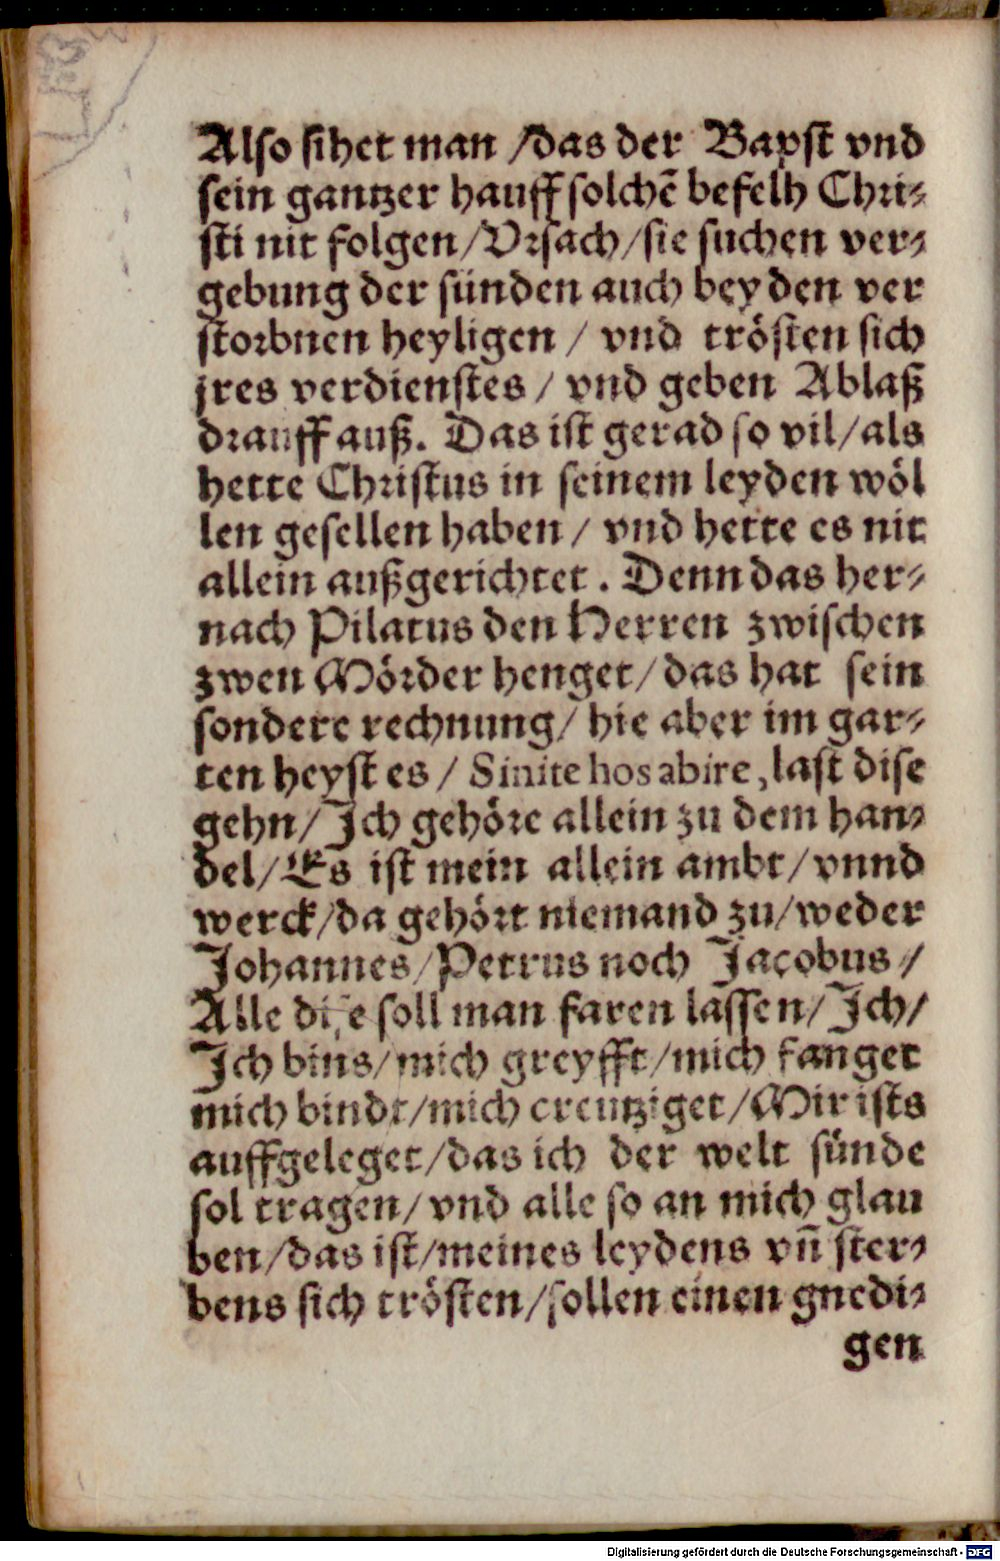 Also sihet man /das der Bapst vnd
sein gantzer hauff solchē befelh Chri⸗
sti nit folgen/Vrsach/sie suchen ver⸗
gebung der sünden auch bey den ver
storbnen heyligen / vnd trösten sich
jres verdienstes / vnd geben Ablaß
drauff auß. Das ist gerad so vil/als
hette Christus in seinem leyden wöl
len gesellen haben / vnd hette es nit
allein außgerichtet . Denn das her⸗
nach Pilatus den Herren zwischen
zwen Mörder henget/das hat sein
sondere rechnung/ hie aber im gar⸗
ten heyst es / Sinite hos abire, last dise
gehn/Ich gehöre allein zu dem han⸗
del/Es ist mein allein ambt/vnnd
werck/da gehört niemand zu/weder
Johannes/Petrus noch Jacobus /
Alle dise soll man faren lassen/Ich/
Ich bins/mich greyfft/mich fanget
mich bindt/mich creutziget/Mir ists
auffgeleget/das ich der welt sünde
sol tragen/vnd alle so an mich glau
ben/das ist/meines leydens vñ ster⸗
bens sich trösten/sollen einen gnedi⸗
gen
Digitalisierung gefördert durch die Deutsche Forschungsgemeinschaft - DFG